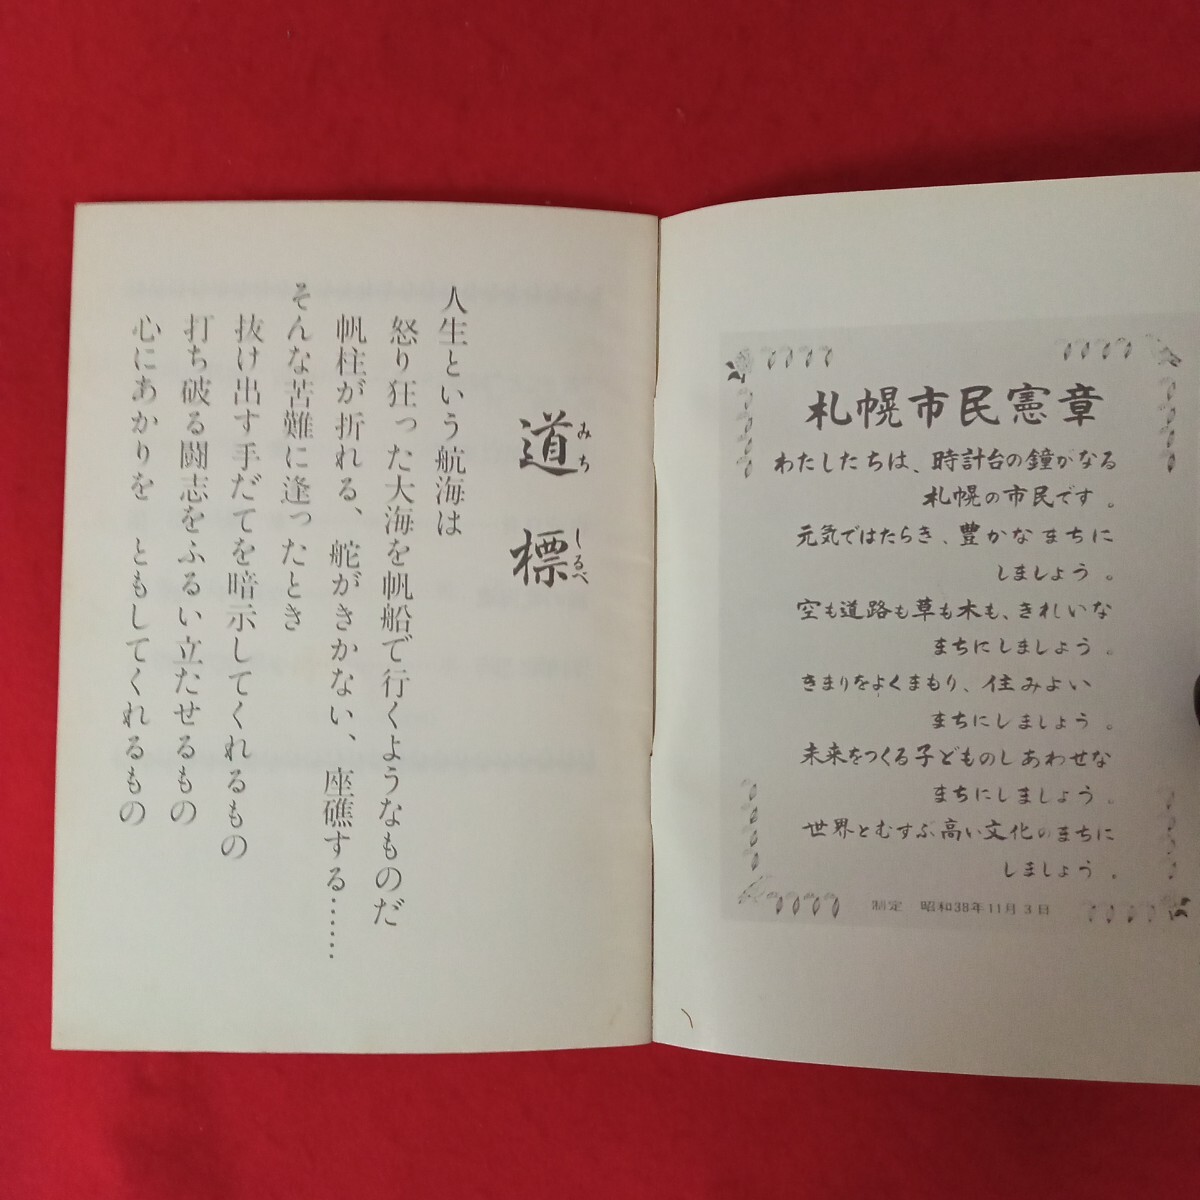 道標
みちしるべ
人生という航海は
怒り狂った大海を帆船で行くようなものだ
帆柱が折れる、舵がきかない、座礁する……
そんな苦難に逢ったとき
抜け出す手だてを暗示してくれるもの
打ち破る闘志をふるい立たせるもの
心にあかりをともしてくれるもの
札幌市民憲章
わたしたちは、時計台の鐘がなる
札幌の市民です。
元気ではたらき、豊かなまちに
しましょう。
空も道路も草も木も、きれいな
まちにしましょう。
きまりをよくまもり、住みよい
まちにしましょう。
未来をつくる子どものしあわせな
まちにしましょう。
世界とむすぶ高い文化のまちに
しましょう。
制定 昭和38年11月3日